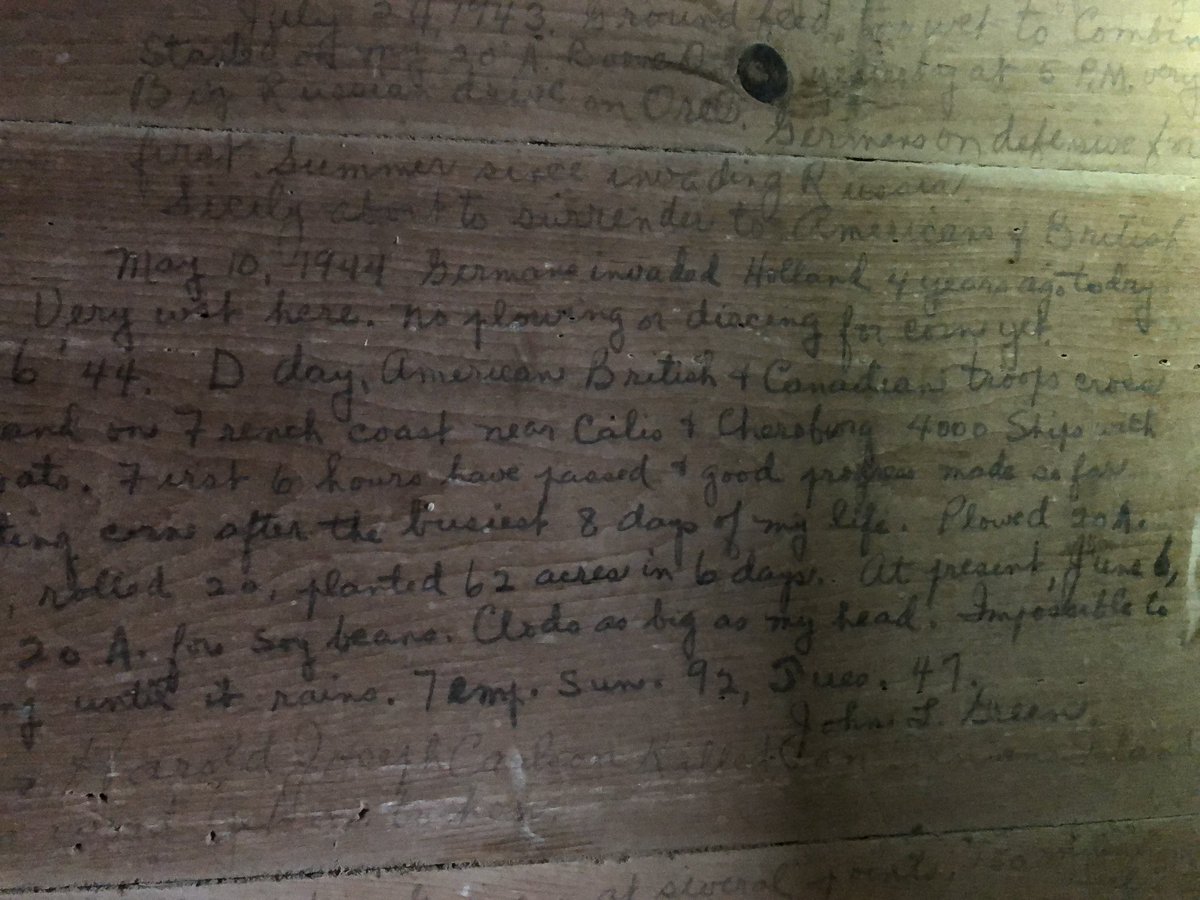 July 24, 1943. Ground feed, too wet to Combin
Started on my 20 A. yesterday at 5 P.M. very
Big Russian drive on Orel. Germans on defensive for
first summer since invading Russia.
Sicily about to surrender to Americans & British
May 10, 1944 Germans invaded Holland 4 years ago today
Very wet here. no plowing or discing for corn yet.
6 '44. D day, American British & Canadian troops cross
and on French coast near Calis & Cheroburg 4000 Ships with
oats. First 6 hours have passed & good progress made so far
ting corn after the busiest 8 days of my life. Plowed 20 A.
, rolled 20, planted 62 acres in 6 days. At present, June 6,
20 A. for Soy beans. Clods as big as my head. Impossible to
ng until it rains. Temp. Sun. 92, Tues. 47.
John L. Green.
Harold Joseph Carlson Killed
at several points.